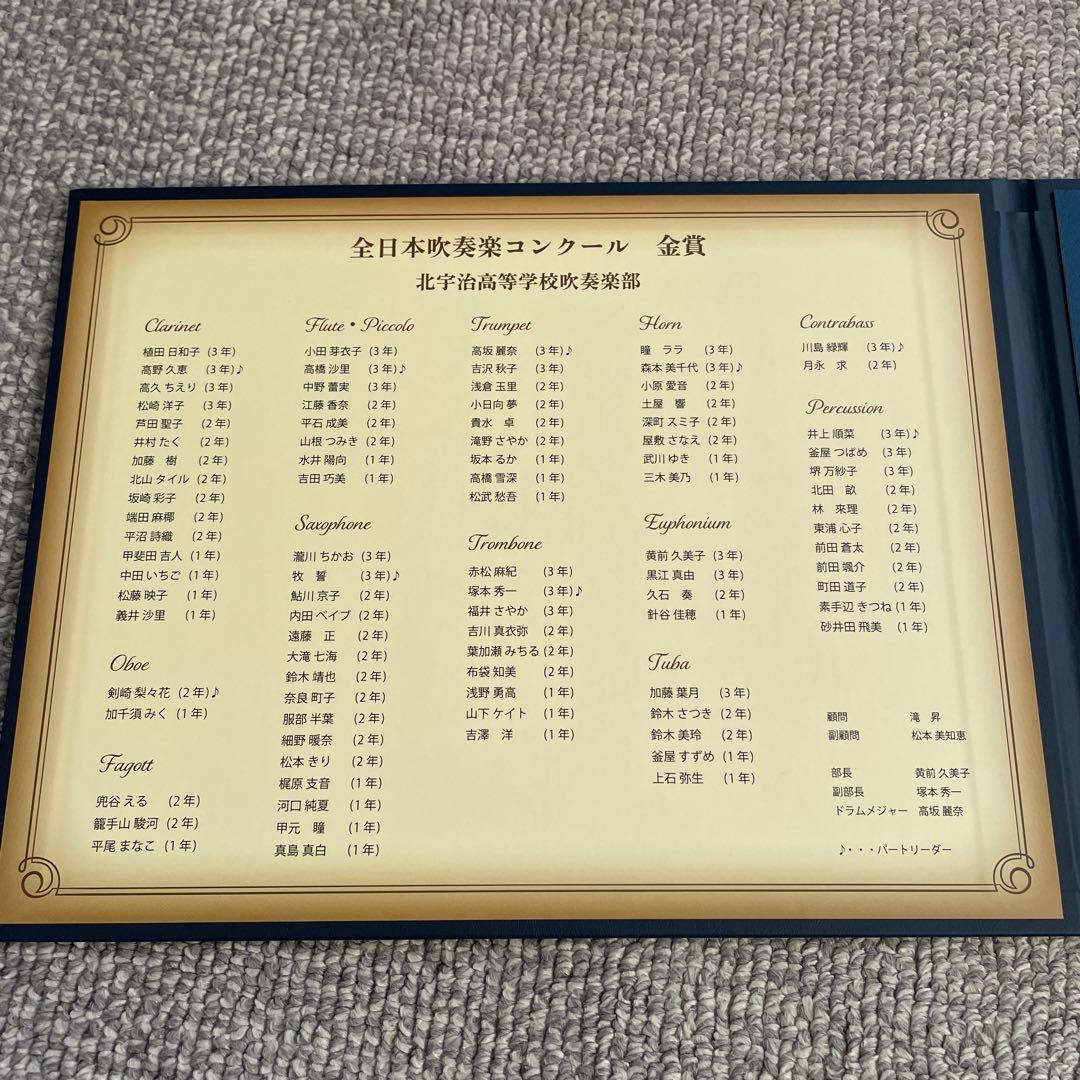 全日本吹奏楽コンクール 金賞
北宇治高等学校吹奏楽部
Clarinet
植田 日和子 (3 年)
高野 久恵 (3 年)♪
高久 ちえり (3 年)
松崎 洋子 (3 年)
芦田 聖子 (2 年)
井村 たく (2 年)
加藤 樹 (2 年)
北山 タイル (2 年)
坂崎 彩子 (2 年)
端田 麻椰 (2 年)
平沼 詩織 (2 年)
甲斐田 吉人 (1 年)
中田 いちご (1 年)
松藤 映子 (1 年)
義井 沙里 (1 年)
Oboe
剣崎 梨々花 (2 年)♪
加千須 みく (1 年)
Fagott
兜谷 える (2 年)
籠手山 駿河 (2 年)
平尾 まなこ (1 年)
Flute・Piccolo
小田 芽衣子 (3 年)
高橋 沙里 (3 年)♪
中野 蕾実 (3 年)
江藤 香奈 (2 年)
平石 成美 (2 年)
山根 つみき (2 年)
水井 陽向 (1 年)
吉田 巧美 (1 年)
Saxophone
瀧川 ちかお (3 年)
牧 誓 (3 年)♪
鮎川 京子 (2 年)
内田 ベイブ (2 年)
遠藤 正 (2 年)
大滝 七海 (2 年)
鈴木 靖也 (2 年)
奈良 町子 (2 年)
服部 半葉 (2 年)
細野 暖奈 (2 年)
松本 きり (2 年)
梶原 支音 (1 年)
河口 純夏 (1 年)
甲元 瞳 (1 年)
真島 真白 (1 年)
Trumpet
高坂 麗奈 (3 年)♪
吉沢 秋子 (3 年)
浅倉 玉里 (2 年)
小日向 夢 (2 年)
貴水 卓 (2 年)
滝野 さやか (2 年)
坂本 るか (1 年)
高橋 雪深 (1 年)
松武 愁吾 (1 年)
Trombone
赤松 麻紀 (3 年)
塚本 秀一 (3 年)♪
福井 さやか (3 年)
吉川 真衣弥 (2 年)
葉加瀬 みちる (2 年)
布袋 知美 (2 年)
浅野 勇高 (1 年)
山下 ケイト (1 年)
吉澤 洋 (1 年)
Horn
瞳 ララ (3 年)
森本 美千代 (3 年)♪
小原 愛音 (2 年)
土屋 響 (2 年)
深町 スミ子 (2 年)
屋敷 さなえ (2 年)
武川 ゆき (1 年)
三木 美乃 (1 年)
Euphonium
黄前 久美子 (3 年)
黒江 真由 (3 年)
久石 奏 (2 年)
針谷 佳穂 (1 年)
Tuba
加藤 葉月 (3 年)
鈴木 さつき (2 年)
鈴木 美玲 (2 年)
釜屋 すずめ (1 年)
上石 弥生 (1 年)
Contrabass
川島 緑輝 (3 年)♪
月永 求 (2 年)
Percussion
井上 順菜 (3 年)♪
釜屋 つばめ (3 年)
堺 万紗子 (3 年)
北田 畝 (2 年)
林 來理 (2 年)
東浦 心子 (2 年)
前田 蒼太 (2 年)
前田 颯介 (2 年)
町田 道子 (2 年)
素手辺 きつね (1 年)
砂井田 飛美 (1 年)
顧問 滝 昇
副顧問 松本 美知恵
部長 黄前 久美子
副部長 塚本 秀一
ドラムメジャー 高坂 麗奈
♪・・・パートリーダー